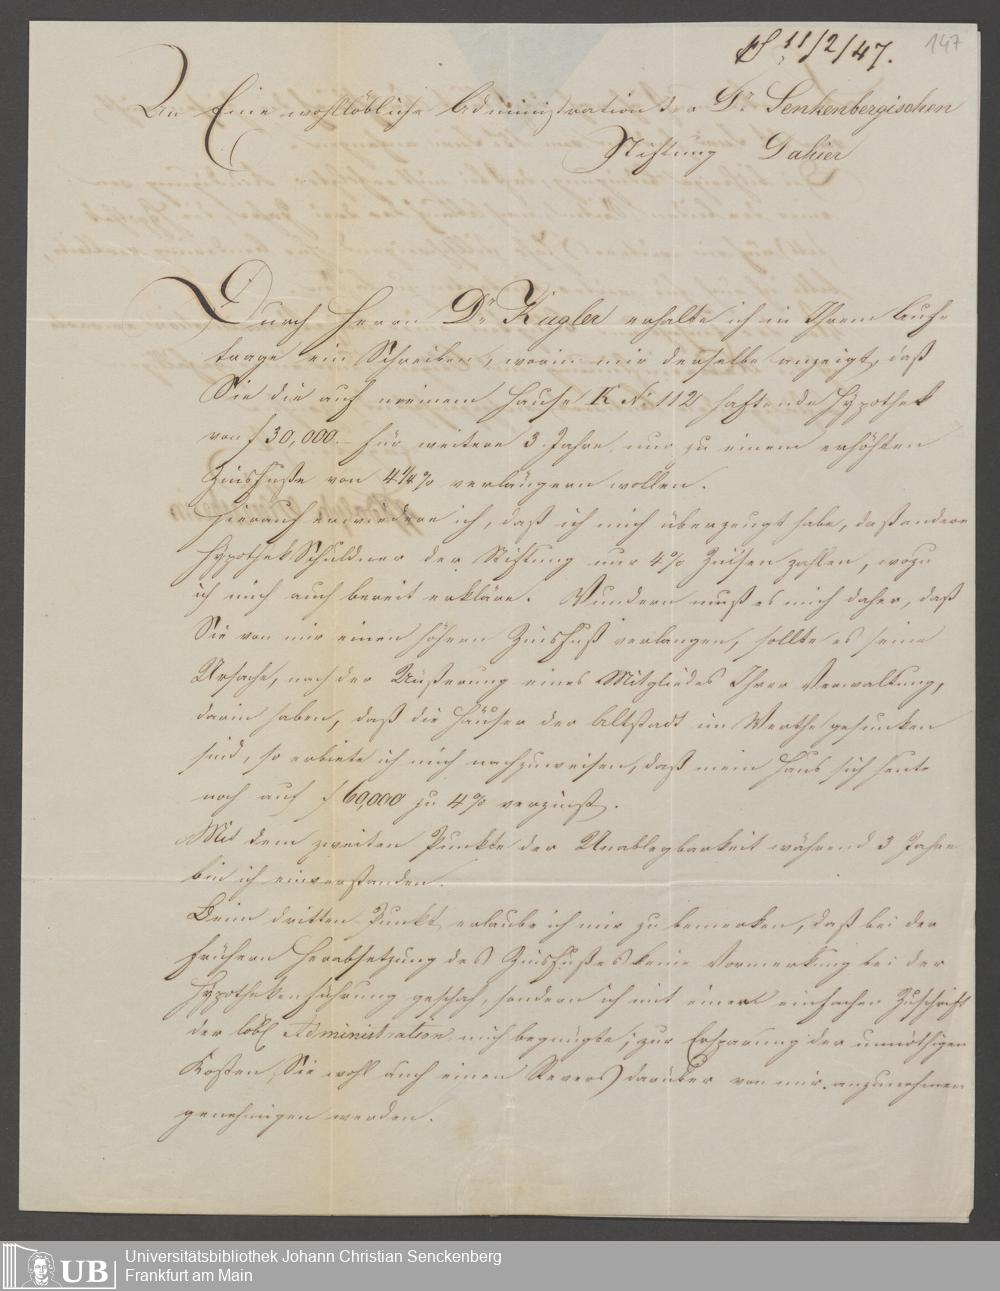 11/2/47.
147
An Eine wohllöbliche Administration der Dr Senkenbergischen
Stiftung Dahier
Durch Herrn Dr Kugler erhalte ich in Ihrem Auf-
trage ein Schreiben, worin mir derselbe anzeigt, daß
Sie die auf meinem Hause K No 112 haftende Hypothek
von f 30,000.– für weitere 3 Jahre, nur zu einem erhöhten
Zinsfuße von 4¼% verlängern wollen.
Hierauf erwiedere ich, daß ich mich überzeugt habe, daß andere
Hypothek Schuldner der Stiftung nur 4% Zinsen zahlen, wozu
ich mich auch bereit erkläre. Wundern muß es mich daher, daß
Sie von mir einen höhern Zinsfuß verlangen, sollte es seine
Ursache, nach der Äußerung eines Mitgliedes Ihrer Verwaltung,
darin haben, daß die Häuser der Altstadt im Werthe gesunken
sind, so erbiete ich mich nachzuweisen, daß mein Haus sich heute
noch auf f 60,000 zu 4% verzinst.
Mit dem zweiten Punkte der Unablegbarkeit während 3 Jahre
bin ich einverstanden.
Beim dritten Punkt erlaube ich mir zu bemerken, daß bei der
frühern Herabsetzung des Zinsfußes keine Vormerkung bei der
Hypothekenführung geschah, sondern ich mit einer einfachen Zuschrift
der löbl Administration mich begnügte; zur Ersparung der unnöthigen
Kosten, Sie wohl auch einen Revers darüber von mir anzunehmen
genehmigen werden.
UB
Universitätsbibliothek Johann Christian Senckenberg
Frankfurt am Main